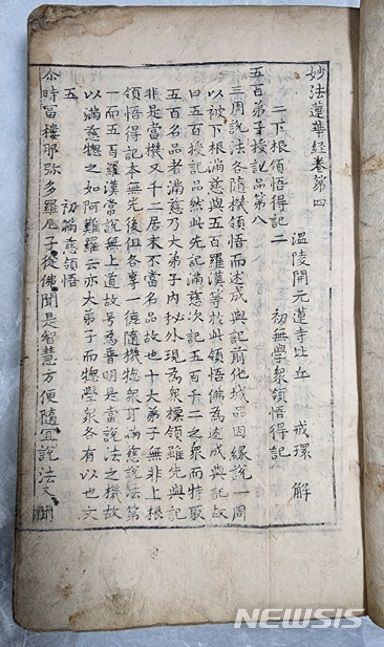 妙法蓮華經卷第四
溫陵開元蓮寺比丘 戒環 解
二下根領悟得記二 初無學衆領悟得記
五百弟子授記品第八
三周說法各隨機領悟而述成與記前化城品因緣說一周
以被下根滿慈與五百羅漢等於此領悟佛爲述成與記故
曰五百授記品然此先記滿慈次記五百千二之衆而特取
五百名品者滿慈乃大弟子內秘外現爲衆標領雖先與記
非是當機又千二居末不當名品故也十大弟子無非上根
領悟得記本無先後但各享一德隨機揔衆耳滿慈說法第
一而五百羅漢當說無上道故号爲普明是當說法之機故
以滿慈揔之如阿難羅云亦大弟子而揔學衆各有以也文
五 初滿慈領悟
尒時富樓那弥多羅尼子從佛聞是智慧方便隨宜說法又聞
NEWSIS